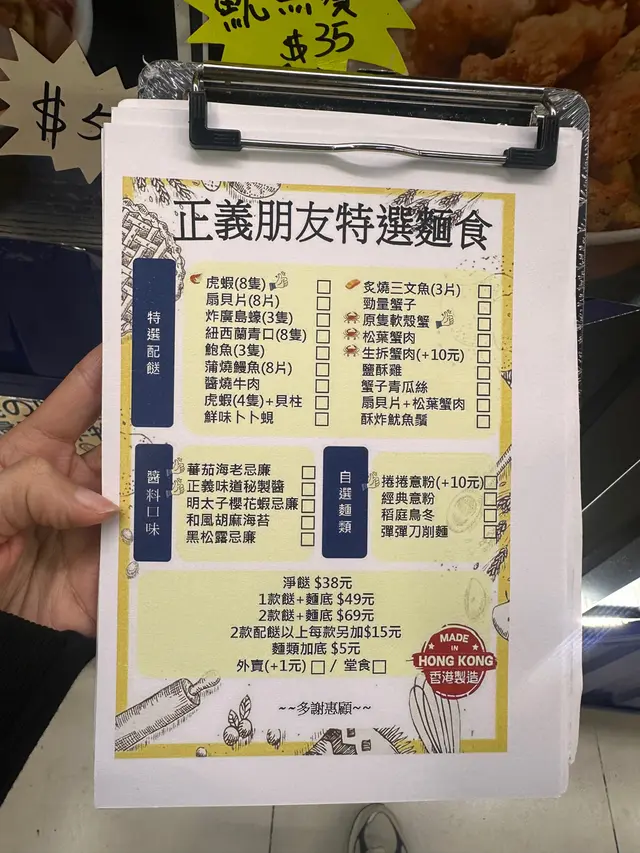 魷魚鬚
$35
$5
正義朋友特選麵食
特選配餸
虎蝦(8隻)
扇貝片(8片)
炸廣島蠔(3隻)
紐西蘭青口(8隻)
鮑魚(3隻)
蒲燒鰻魚(8片)
醬燒牛肉
虎蝦(4隻)+貝柱
鮮味卜卜蜆
炙燒三文魚(3片)
勁量蟹子
原隻軟殼蟹
松葉蟹肉
生拆蟹肉(+10元)
鹽酥雞
蟹子青瓜絲
扇貝片+松葉蟹肉
酥炸魷魚鬚
醬料口味
蕃茄海老忌廉
正義味道秘製醬
明太子櫻花蝦忌廉
和風胡麻海苔
黑松露忌廉
自選麵類
捲捲意粉(+10元)
經典意粉
稻庭烏冬
彈彈刀削麵
淨餸 $38元
1款餸+麵底 $49元
2款餸+麵底 $69元
2款配餸以上每款另加$15元
麵類加底 $5元
外賣(+1元) / 堂食
MADE
IN
HONG KONG
香港製造
~~多謝惠顧~~